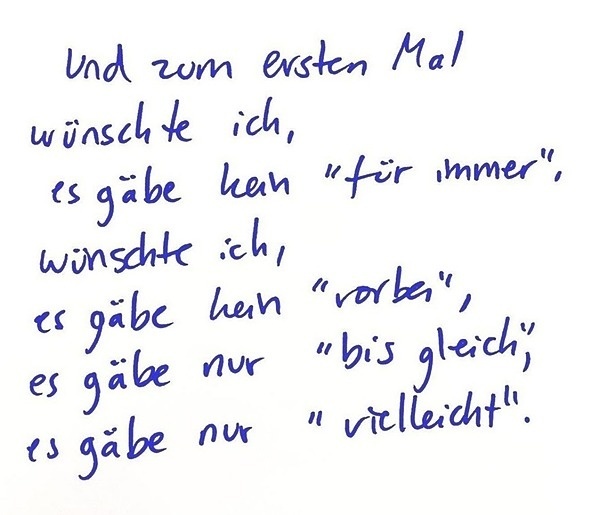 Und zum ersten Mal
wünschte ich,
es gäbe kein "für immer",
wünschte ich,
es gäbe kein "vorbei",
es gäbe nur "bis gleich",
es gäbe nur "vielleicht".